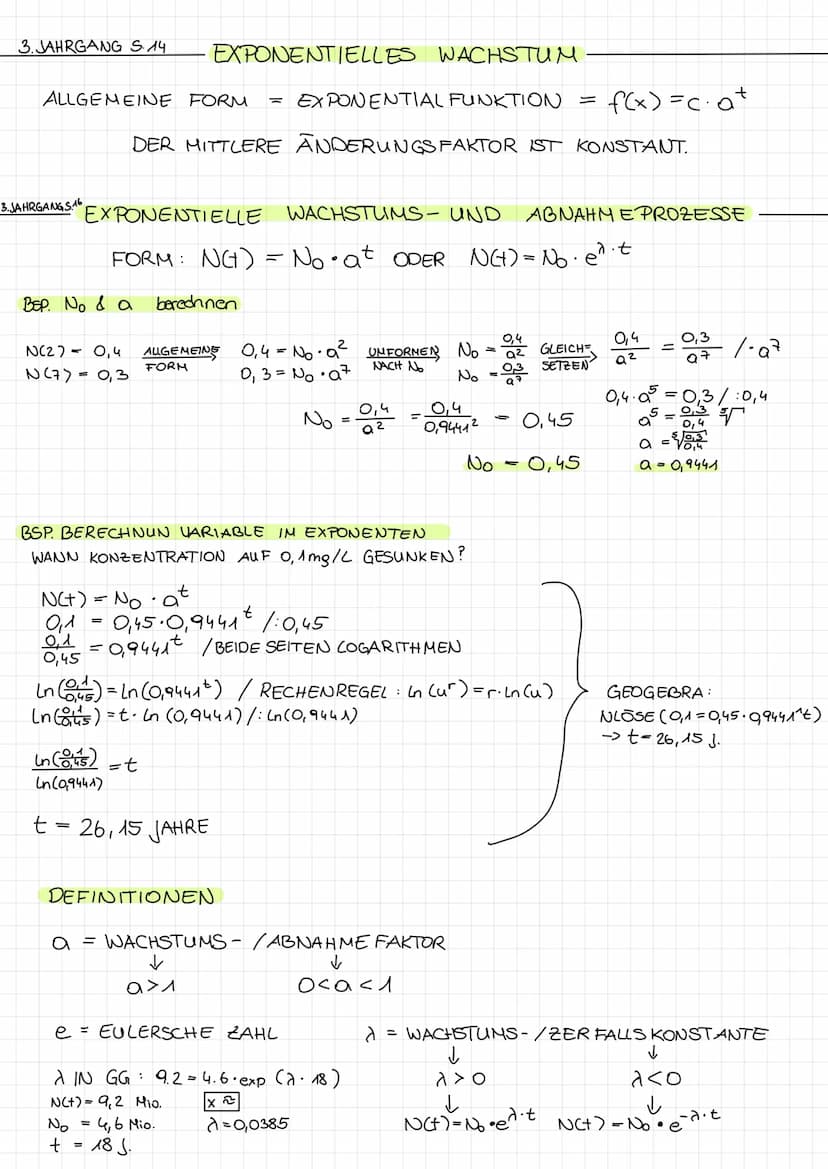 3. JAHRGANG S. 14
EXPONENTIELLES WACHSTUM
ALLGEMEINE FORM = EXPONENTIALFUNKTION = f(x) = c · a^t
DER MITTLERE ÄNDERUNGSFAKTOR IST KONSTANT.
3. JAHRGANG S. 16
EXPONENTIELLE WACHSTUMS- UND ABNAHMEPROZESSE
FORM: N(t) = N₀ · a^t ODER N(t) = N₀ · e^λ·t
BSP. N₀ & a berechnen
N(2) = 0,4 ALLGEMEINE FORM 0,4 = N₀ · a² UMFORMEN NACH N₀ N₀ = 0,4/a² GLEICH= SETZEN 0,4/a² = 0,3/a⁷ / · a⁷
N(7) = 0,3 0,3 = N₀ · a⁷ N₀ = 0,3/a⁷
0,4 · a⁵ = 0,3 / :0,4
N₀ = 0,4/a² = 0,4/0,9441² = 0,45 a⁵ = 0,3/0,4 ⁵√
a = ⁵√0,3/0,4
N₀ = 0,45 a = 0,9441
BSP. BERECHNUN VARIABLE IM EXPONENTEN
WANN KONZENTRATION AUF 0,1mg/L GESUNKEN?
N(t) = N₀ · a^t
0,1 = 0,45 · 0,9441^t / :0,45
0,1/0,45 = 0,9441^t / BEIDE SEITEN LOGARITHMEN
ln(0,1/0,45) = ln(0,9441^t) / RECHENREGEL: ln(u^r) = r · ln(u)
ln(0,1/0,45) = t · ln(0,9441) / : ln(0,9441)
ln(0,1/0,45)/ln(0,9441) = t
t = 26,15 JAHRE
GEOGEBRA:
NLÖSE(0,1=0,45·0,9441^t)
→ t = 26,15 J.
DEFINITIONEN
a = WACHSTUMS- / ABNAHMEFAKTOR
↓ ↓
a > 1 0 < a < 1
e = EULERSCHE ZAHL λ = WACHSTUMS- / ZERFALLSKONSTANTE
↓ ↓
λ IN GG: 9.2 = 4.6 · exp(λ · 18) λ > 0 λ < 0
N(t) = 9,2 Mio. x ≈ ↓ ↓
N₀ = 4,6 Mio. λ = 0,0385 N(t) = N₀ · e^λ·t N(t) = N₀ · e^-λ·t
t = 18 J.